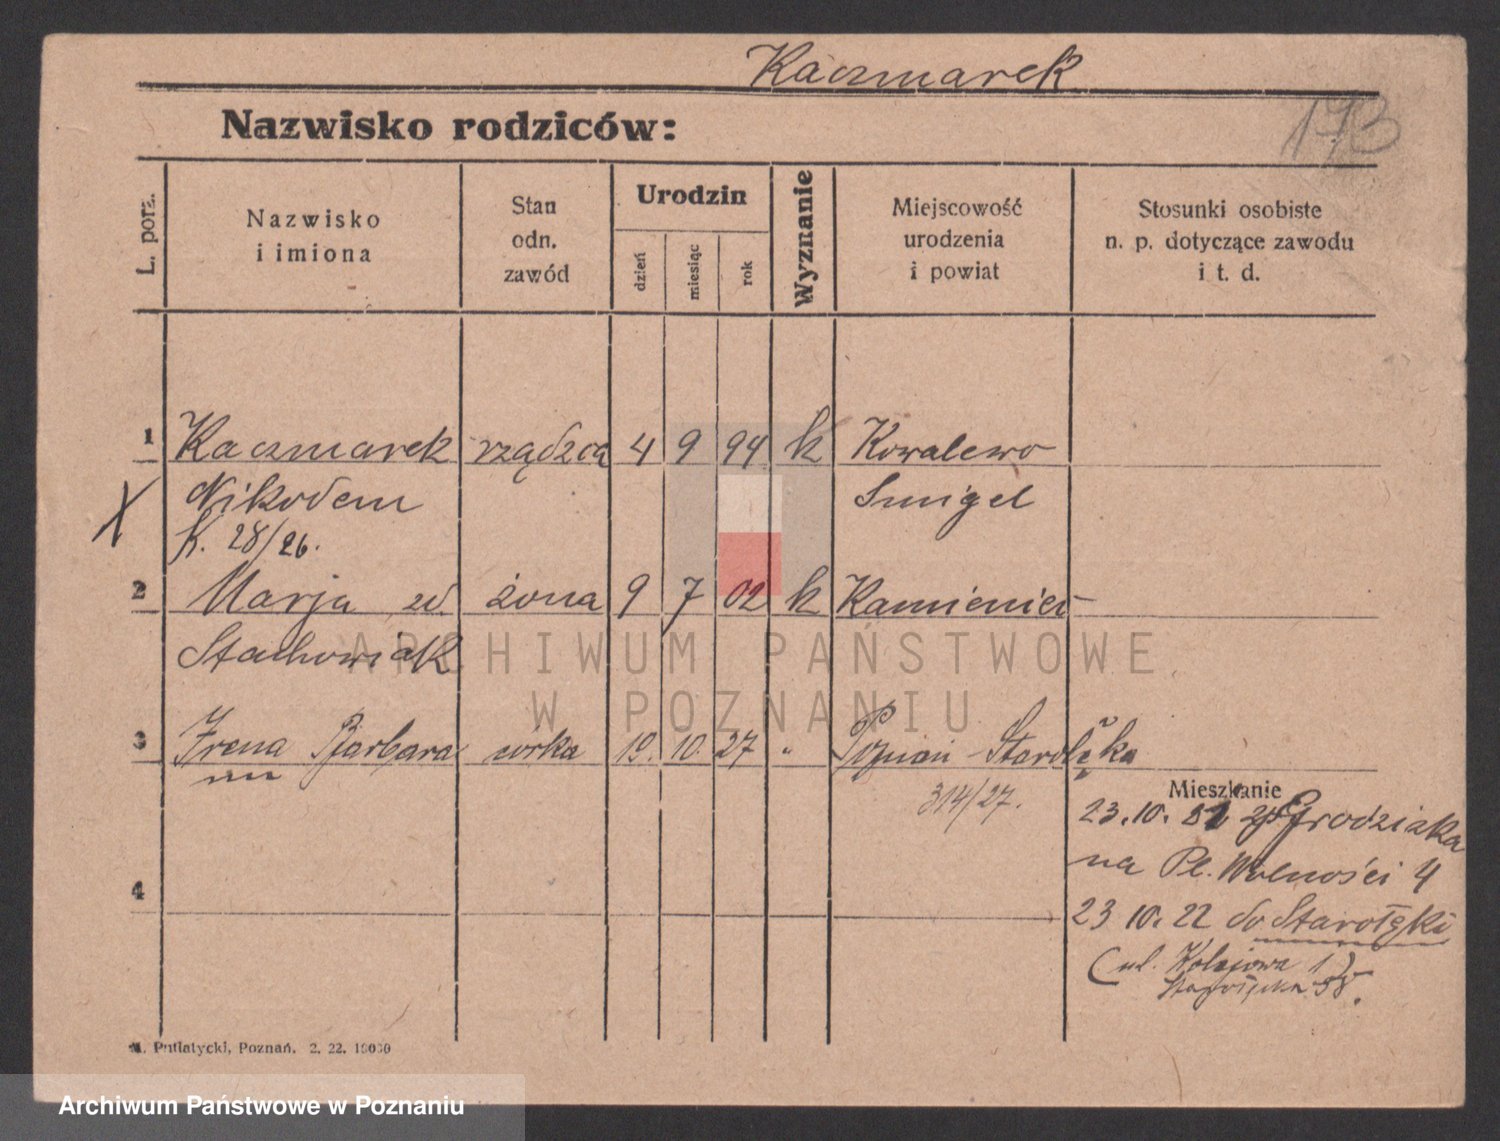 Kaczmarek
173
Nazwisko rodziców:
L. porz.
Nazwisko
i imiona
Stan
odn.
zawód
Urodzin
dzień
miesiąc
rok
Wyznanie
Miejscowość
urodzenia
i powiat
Stosunki osobiste
n. p. dotyczące zawodu
i t. d.
1 Kaczmarek rządzca 4 9 94 k Kowalewo
Nikodem Smigel
k. 28/26.
2 Marja zd żona 9 7 02 k Kamieniec
Stachowiak
3 Irena Barbara córka 19. 10. 27 " Poznań Starołęka
314/27.
Mieszkanie
23.10. Grodziska
na Pl. Wolności 4
4
23 10. 22 do Starołęki
(ul. Kolejowa 1)
Starołęcka 58.
M. Putiatycki, Poznań. 2. 22.
ARCHIWUM PAŃSTWOWE
W POZNANIU
Archiwum Państwowe w Poznaniu